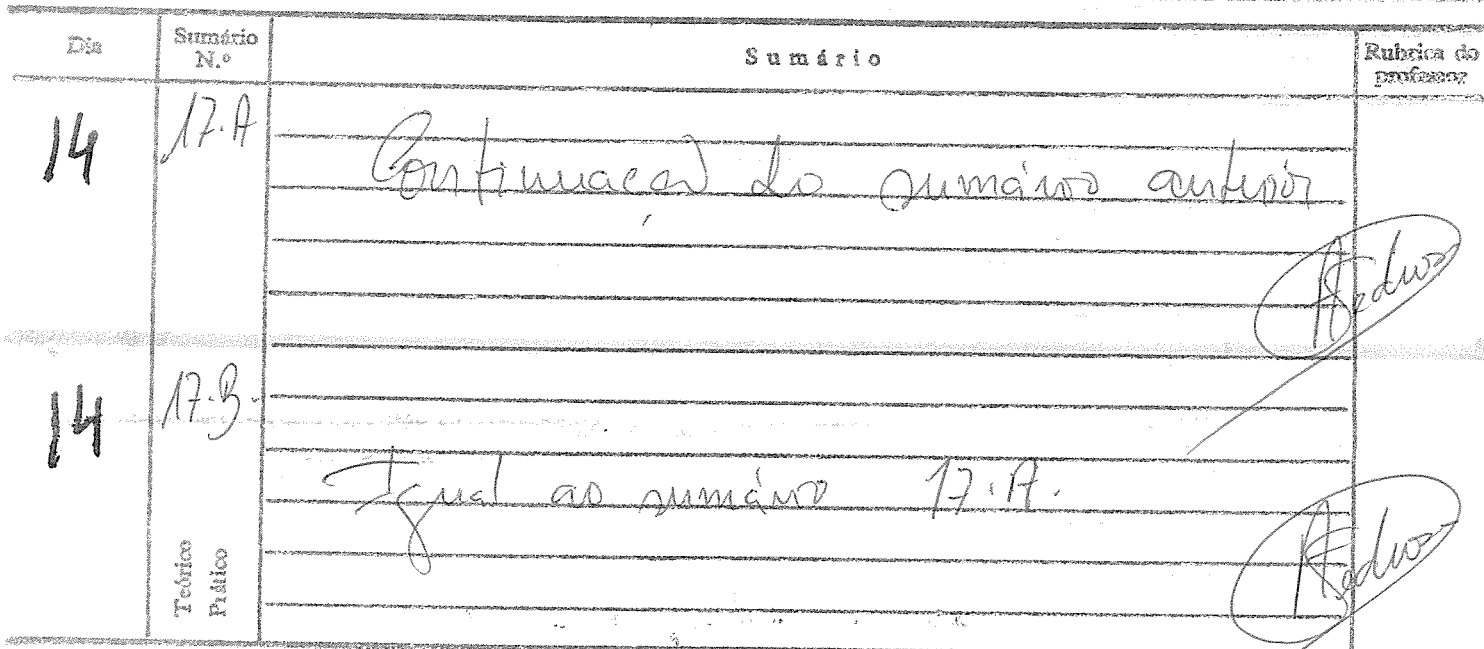 Dia
Sumário N.º
Sumário
Rubrica do professor
14
17.A
Continuação do sumário anterior
14
17.B.
Igual ao sumário 17.A.
Teórico
Prático